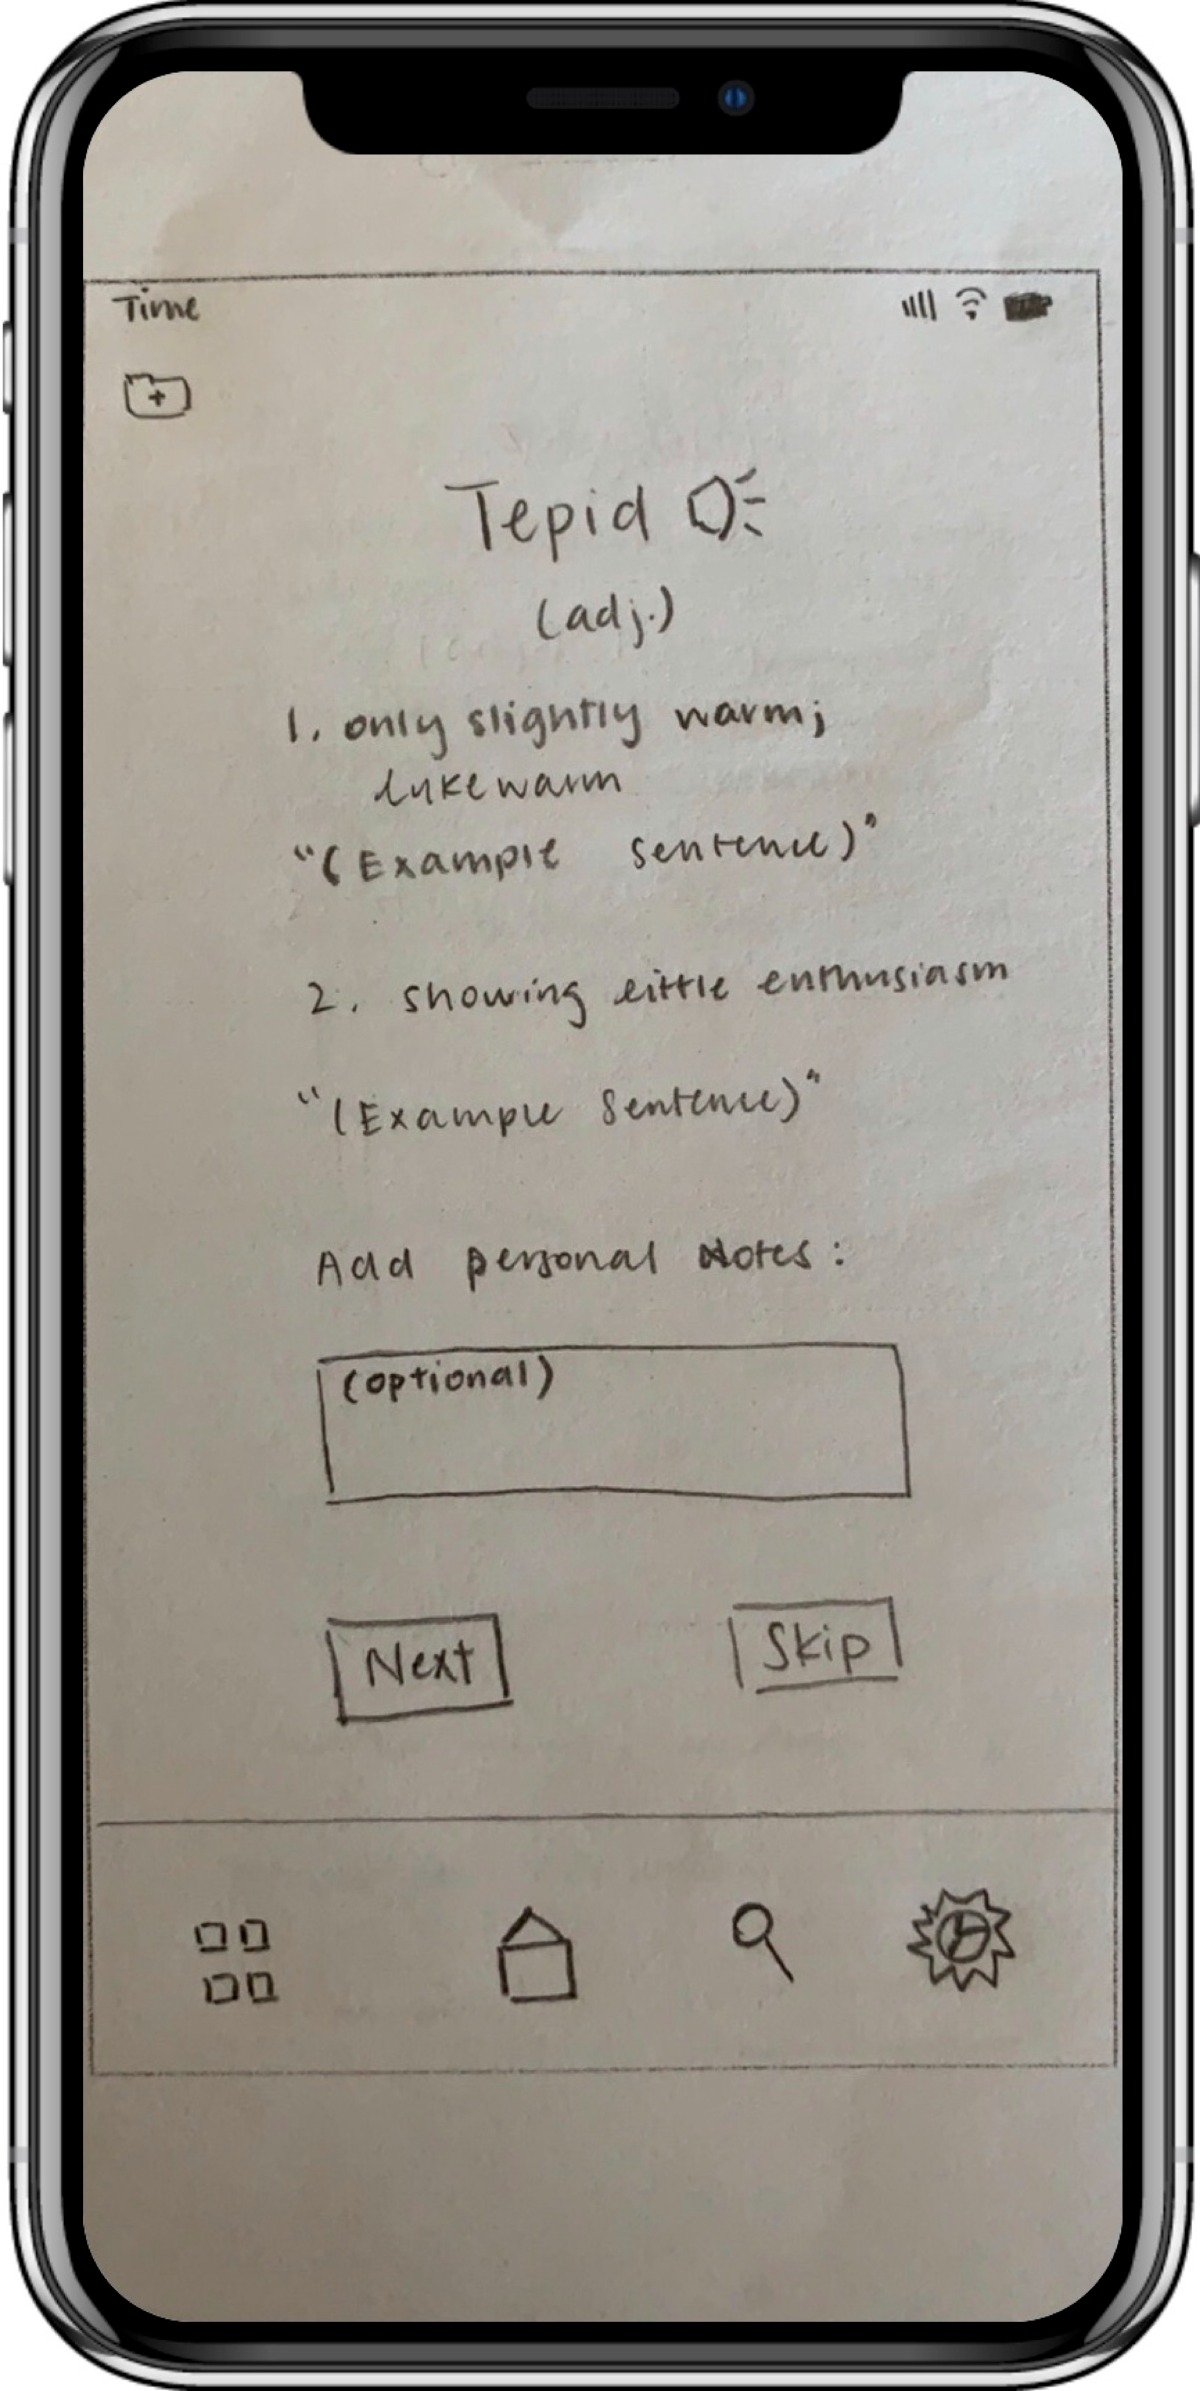 Time
Tepid
(adj.)
1. only slightly warm;
lukewarm
"(Example sentence)"
2. showing little enthusiasm
"(Example Sentence)"
Add personal Notes:
(optional)
Next
Skip